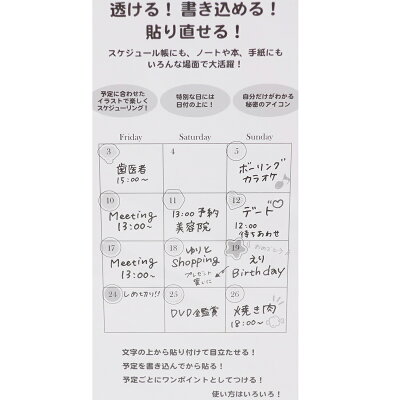 透ける！書き込める！
貼り直せる！
スケジュール帳にも、ノートや本、手紙にも
いろんな場面で大活躍！
予定に合わせた
イラストで楽しく
スケジューリング！
特別な日には
日付の上に！
自分だけがわかる
秘密のアイコン
Friday Saturday Sunday
3 4 5
歯医者
15:00～
ボーリング
カラオケ
10 11 12
Meeting
13:00～
13:00 予約
美容院
デート
12:00
待ちあわせ
17 18 19
Meeting
13:00～
ゆりと
Shopping
プレゼント
買いに
おめでとう
えり
Birthday
24 しめ切り!! 25 26
DVD鑑賞
焼き肉
18:00～
文字の上から貼り付けて目立たせる！
予定を書き込んでから貼る！
予定ごとにワンポイントとしてつける！
使い方はいろいろ！